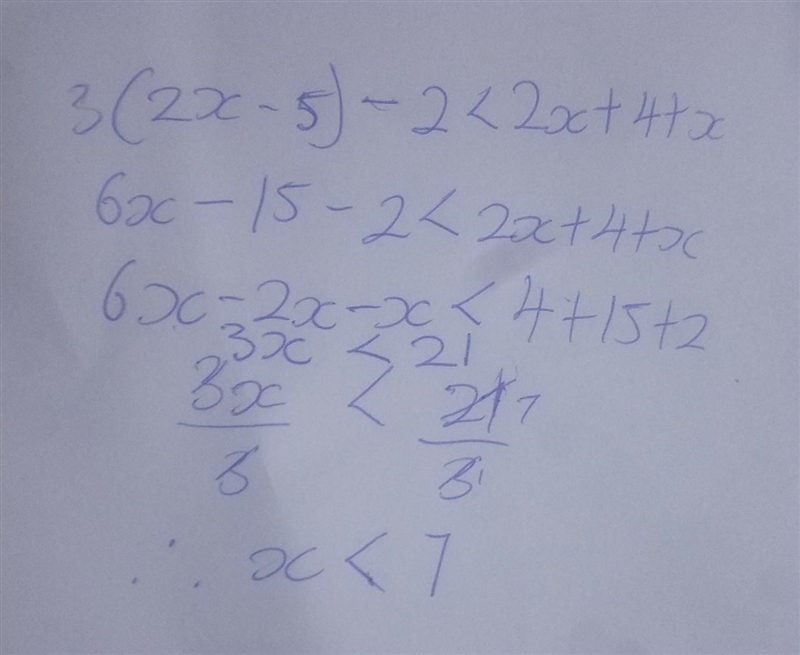 3(2x - 5) - 2 < 2x + 4 + x
6x - 15 - 2 < 2x + 4 + x
6x - 2x - x < 4 + 15 + 2
3x < 21
3x < 21 7
3 3 1
∴ x < 7